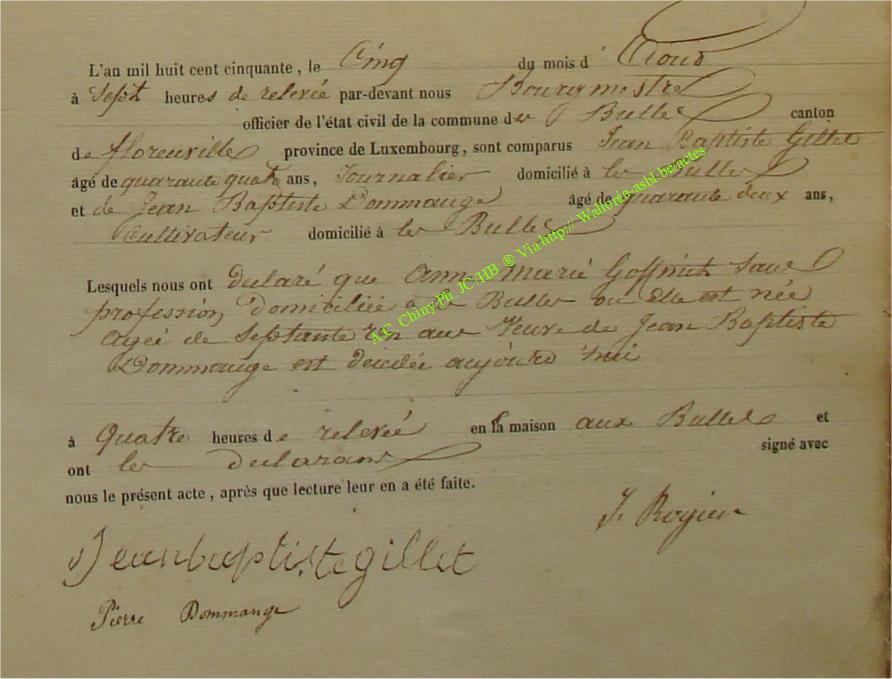 L'an mil huit cent cinquante, le Cinq du mois d' Aoud
à Sept heures de relevée par-devant nous Bourgmestre
officier de l'état civil de la commune des Bulles canton
de florenville province de Luxembourg, sont comparus Jean Baptiste Gillet
âgé de quarante quatre ans, Journalier domicilié à les Bulles
et de Jean Baptiste Dommange âgé de quarante deux ans,
Cultivateur domicilié à les Bulles
Lesquels nous ont déclaré que Ann Marie Goffinet Sans
profession, Domiciliée à Bulles ou Elle est née
agée de Septante ans Veuve de Jean Baptiste
Dommange est décédée aujourd'hui
à Quatre heures de relevée en la maison aux Bulles et
ont les declarans signé avec
nous le présent acte, après que lecture leur en a été faite.
J. Rogier
Jean baptiste gillet
Pierre Dommange
A.C. Chiny Ph. JC/HB ® Via http:// Wallonia-asbl-be/actes